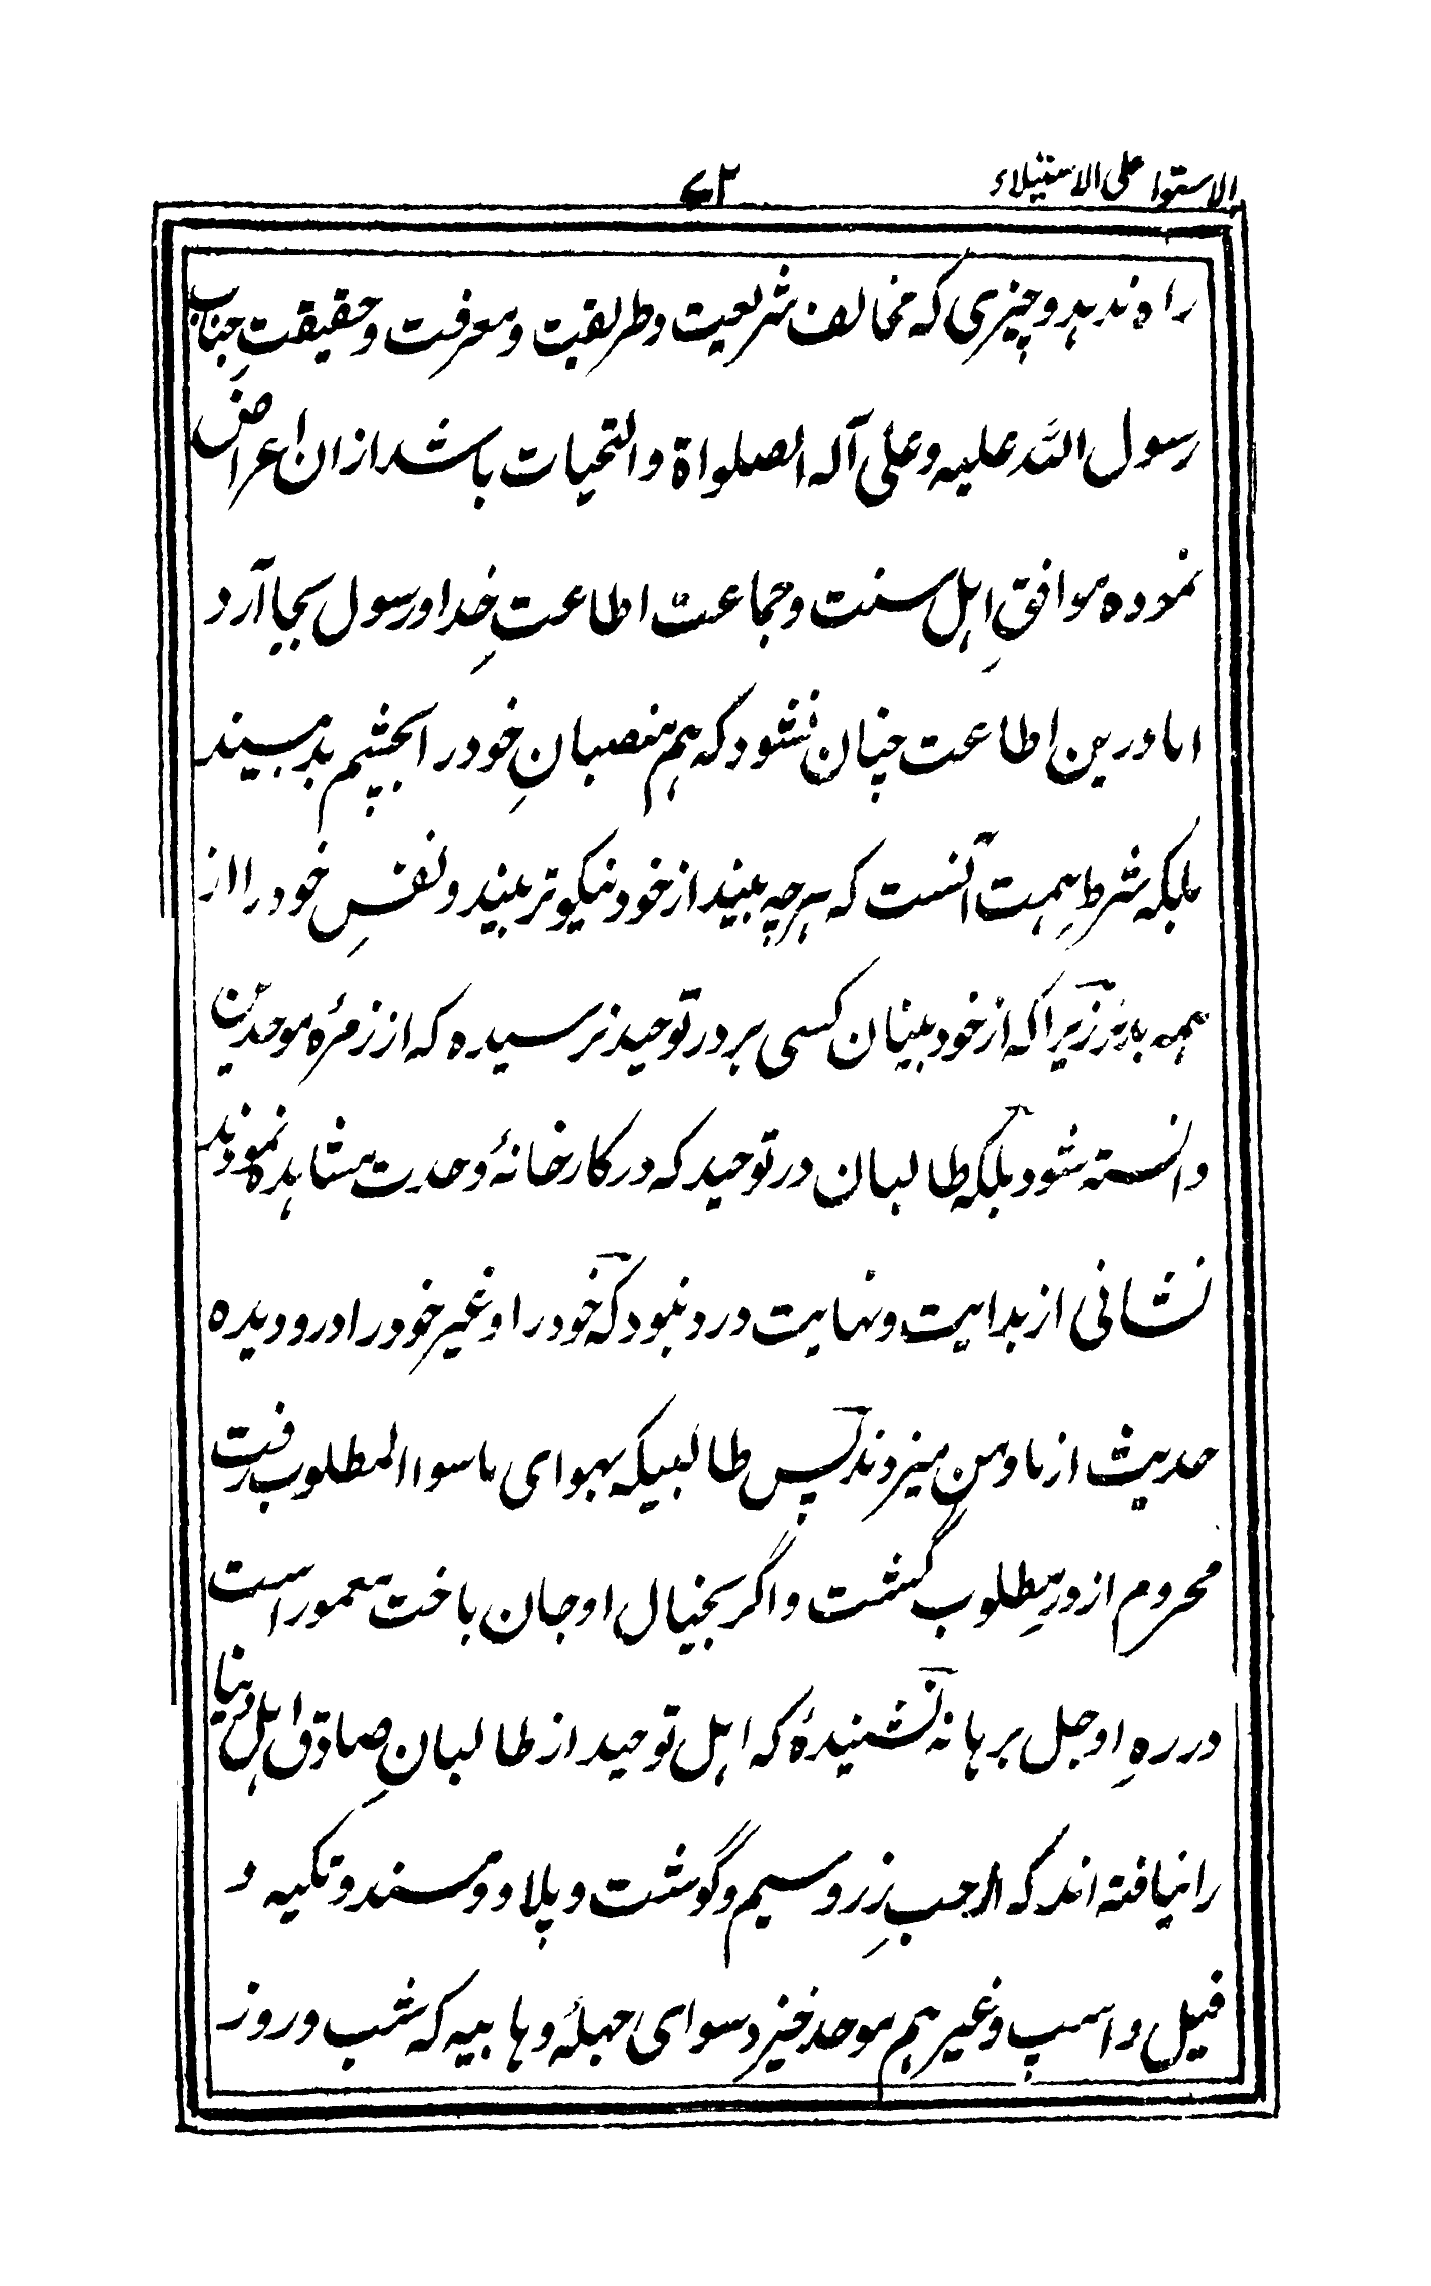 الاستوا علی الاستیلاء
راه ندہد و چیزی کہ مخالف شریعت و طریقت و معرفت و حقیقتِ جناب
رسول اللّٰہ علیہ و علی آلہ الصلواة والتحیات باشد ازان اعراض
نمودہ موافقِ اہل سنت و جماعت اطاعتِ خدا و رسول بجا آرد
اما درین اطاعت چنان نشود کہ ہم منصبانِ خود را بچشم بد بیند
بلکہ شرطِ ہمت آنست کہ ہر چہ بیند از خود نیکوتر بیند و نفسِ خود را از
ہمہ بدتر زیرا کہ از خود بینان کسی بر در توحید نرسیدہ کہ از زمرۂ موحدین
دانستہ شود بلکہ طالبان در توحید کہ در کارخانۂ وحدت مشاہدہ نمودند
نشانی از بدایت و نہایت در و نبود کہ خود را و غیر خود را درو دیدہ
حدیث از ما و من میزدند پس طالبیکہ بہوای ما سوا المطلوب رفت
محروم از ورِ مطلوب گشت و اگر بخیال او جان باخت معمور است
در رہِ او جل برہانہ نشنیدۂ کہ اہل توحید از طالبانِ صادق اہل دنیا
را نیافتہ اند کہ از حبِ زر و سیم و گوشت و پلاو و مسند و تکیہ و
فیل و اسپ و غیر ہم موحد خیزد سوای جہلۂ وہابیہ کہ شب و روز